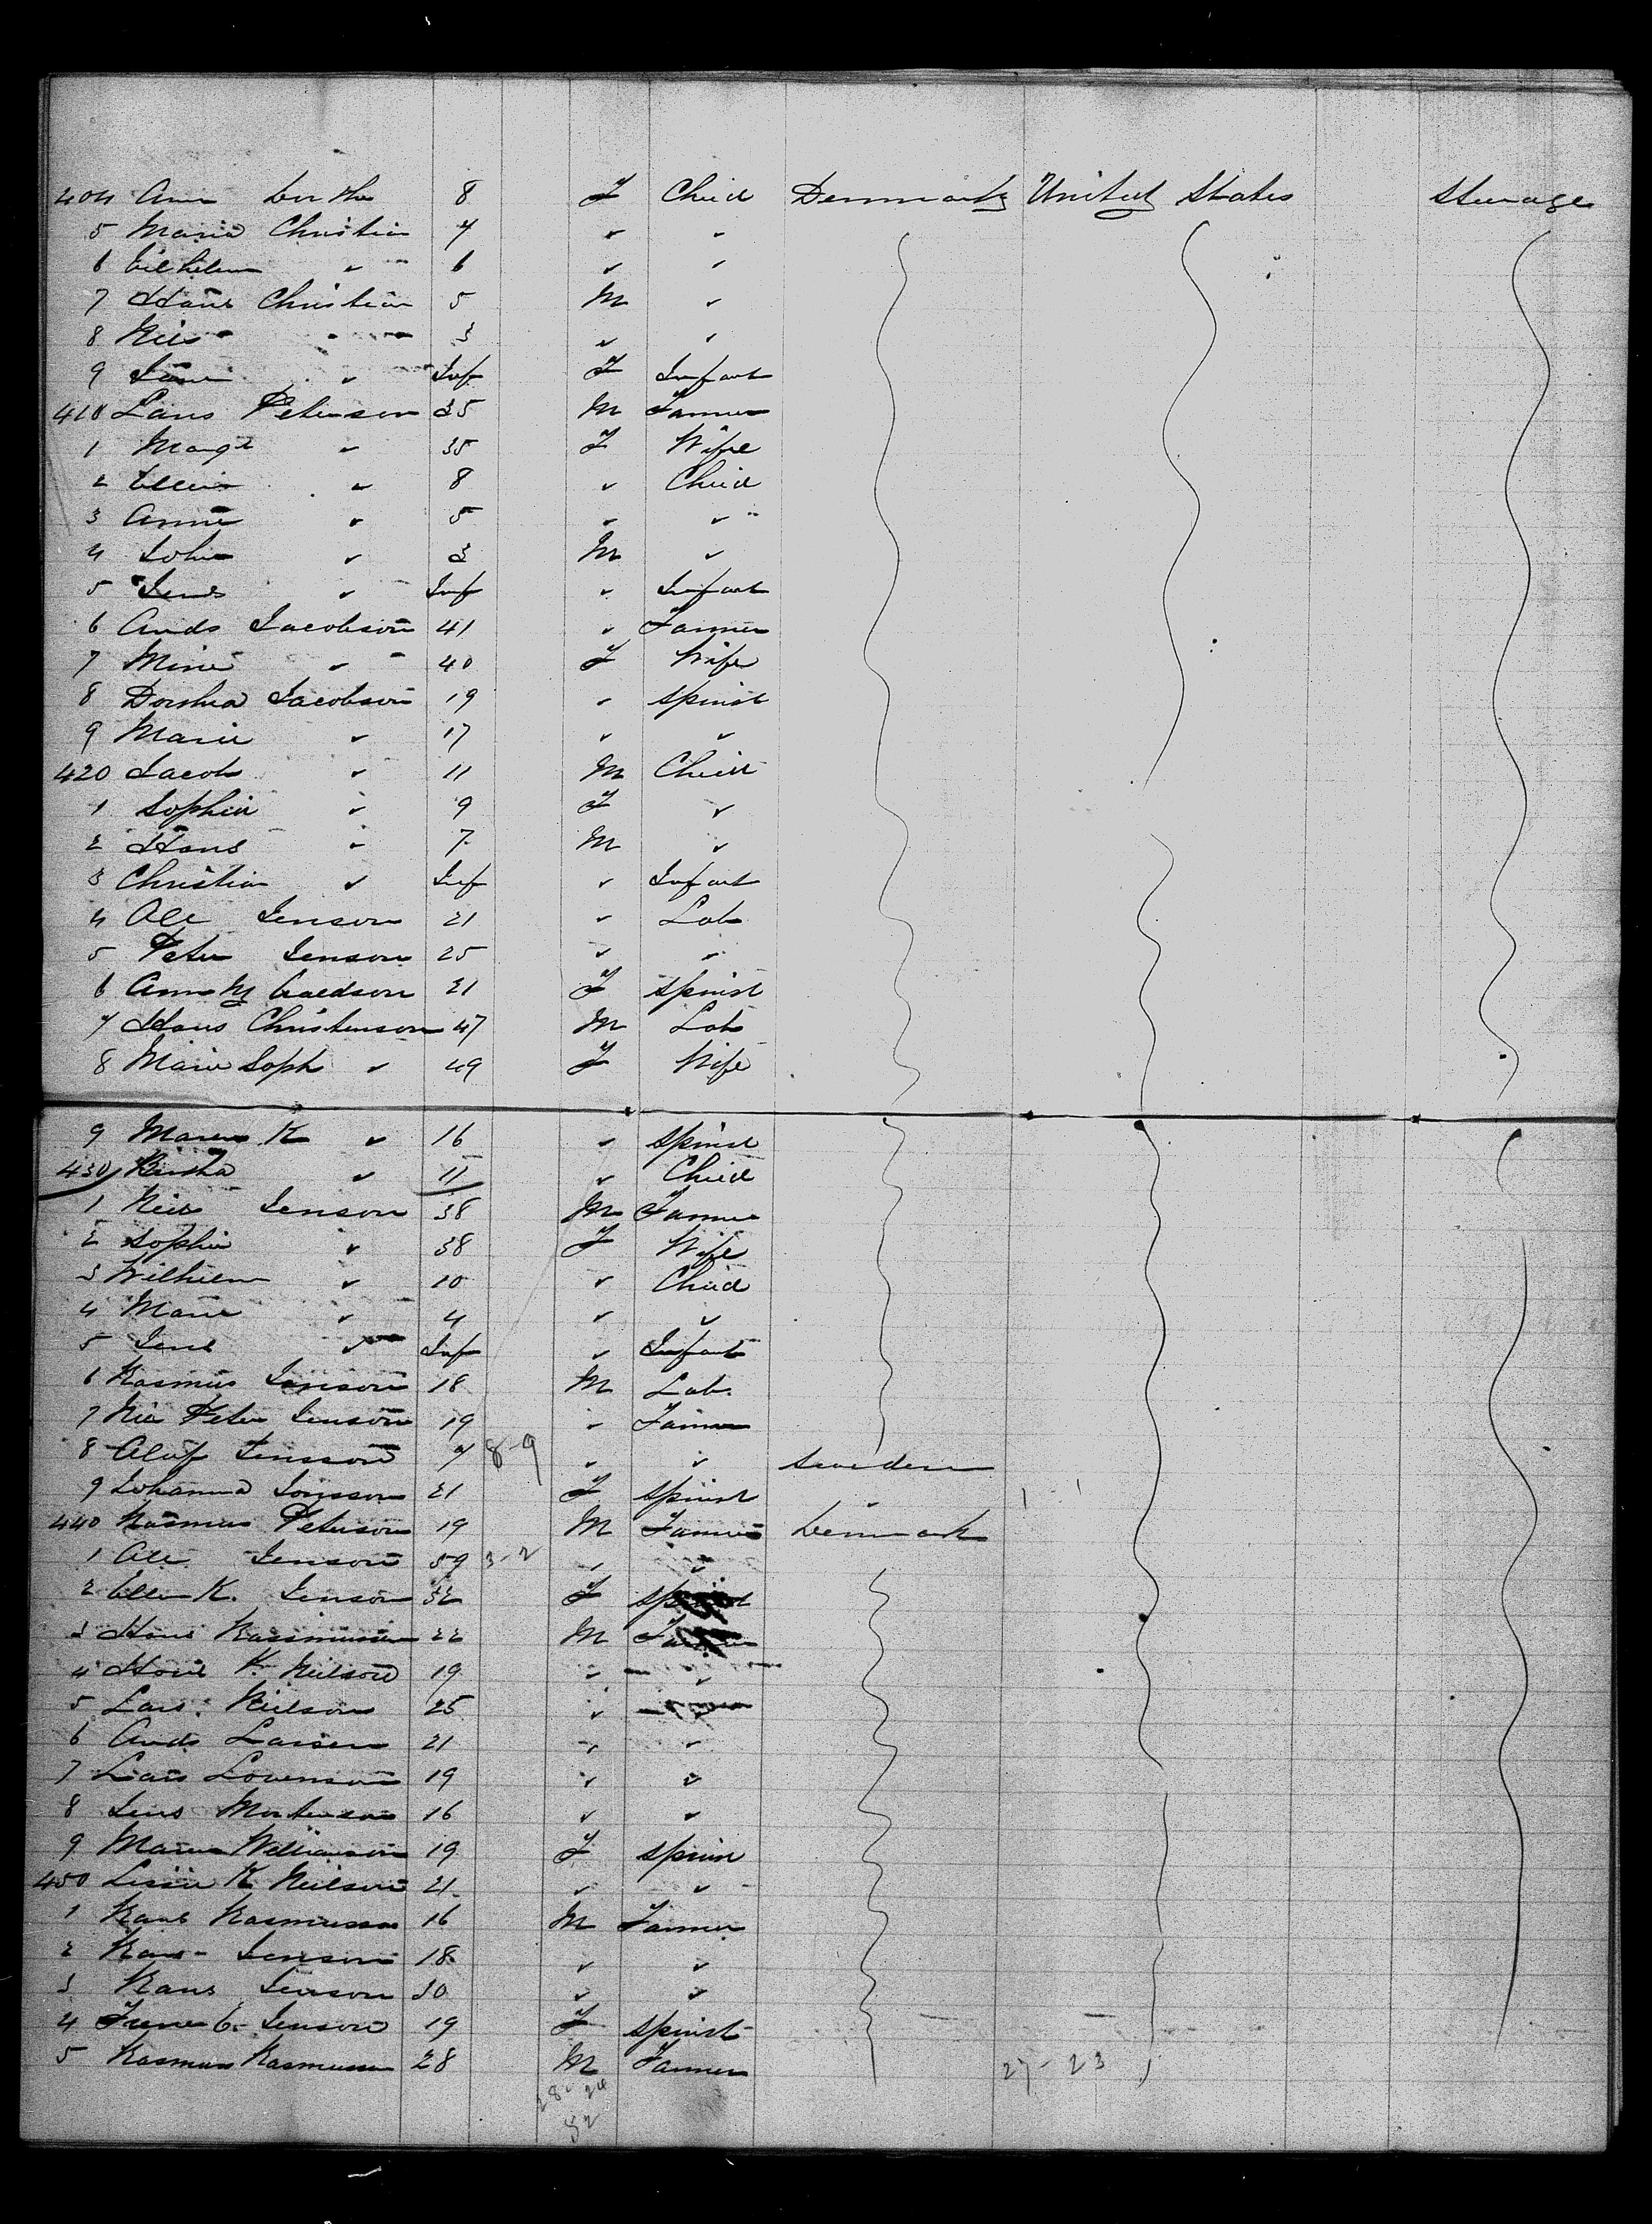 404 Ann 8 F Child Denmark United States Steerage
5 Maria Christian 7 " "
6 " 6 " "
7 Hans Christian 5 M "
8 Neils " 3 " "
9 " Inf F Infant
410 Lars Peterson 35 M Farmer
1 Margt " 35 F Wife
2 Ellen " 8 " Child
3 Anne " 5 " "
4 John " 3 M "
5 Jens " Inf " Infant
6 Ands Jacobson 41 " Farmer
7 Mine " 40 F Wife
8 Dorthea Jacobson 19 " Spinst
9 Marie " 17 " "
420 Jacob " 11 M Child
1 Sophia " 9 F "
2 Hans " 7 M "
3 Christian " Inf " Infant
4 Ole Jenson 21 " Lab
5 Peter Jenson 25 " "
6 Ann M 21 F Spinst
7 Hans Christenson 47 M Lab
8 Marie Soph " 49 F Wife
9 Maren K " 16 " Spinst
430 " 11 " Child
1 Neils Jenson 38 M Farmer
2 Sophia " 38 F Wife
3 Wilhelm " 10 " Child
4 Marie " 4 " "
5 Jens " Inf " Infant
6 Rasmus Jenson 18 M Lab.
7 Peter Jenson 19 " Farmer
8 Olof 7 8-9 " " Sweden
9 Johanna Jonsson 21 F Spinst "
440 Rasmus Peterson 19 M Farmer Denmark
1 Ole Jenson 59 3-2 " "
2 Ellen K. Jenson 32 F Spinst
3 Hans Rassmussen 22 M Farmer
4 Hans K. Neilson 19 " "
5 Lars Neilson 25 "
6 Ands Larsen 21 " "
7 Lars 19 " "
8 Jens Mortenson 16 " "
9 Maren Williamson 19 F Spinn
450 K Neilson 21 " "
1 Hans Rasmussen 16 M Farmer
2 Hans Jenson 18 " "
3 Hans Jenson 30 " "
4 Jenson 19 F Spinst
5 Rasmus Rasmussen 28 M Farmer 27-23